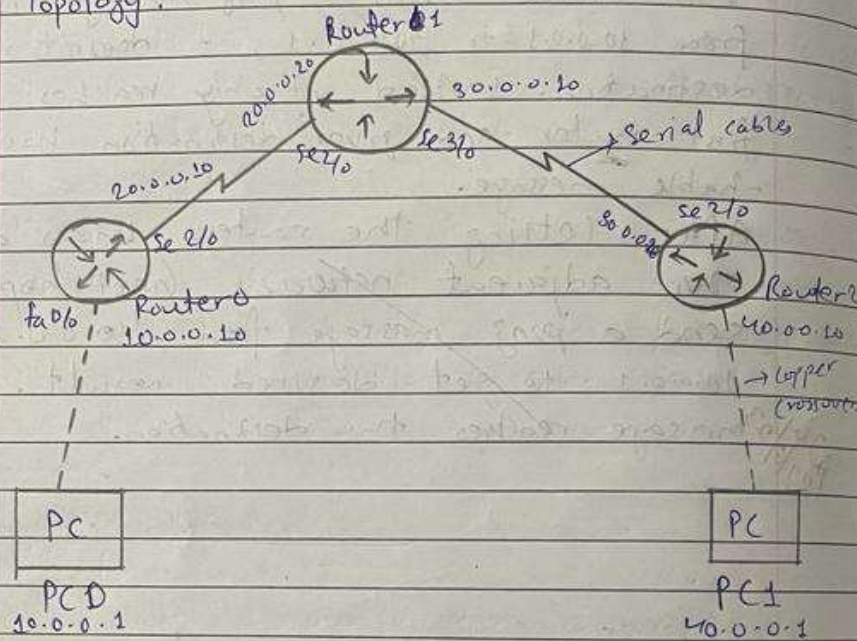 Topology :
Router 1
20.0.0.20
30.0.0.10
se2/0
se3/0
serial cables
20.0.0.10
se 2/0
fa0/0
Router0
10.0.0.10
se 2/0
30.0.0.20
Router2
40.0.0.10
→ copper
crossover
PC
PC
PCD
10.0.0.1
PC1
40.0.0.1